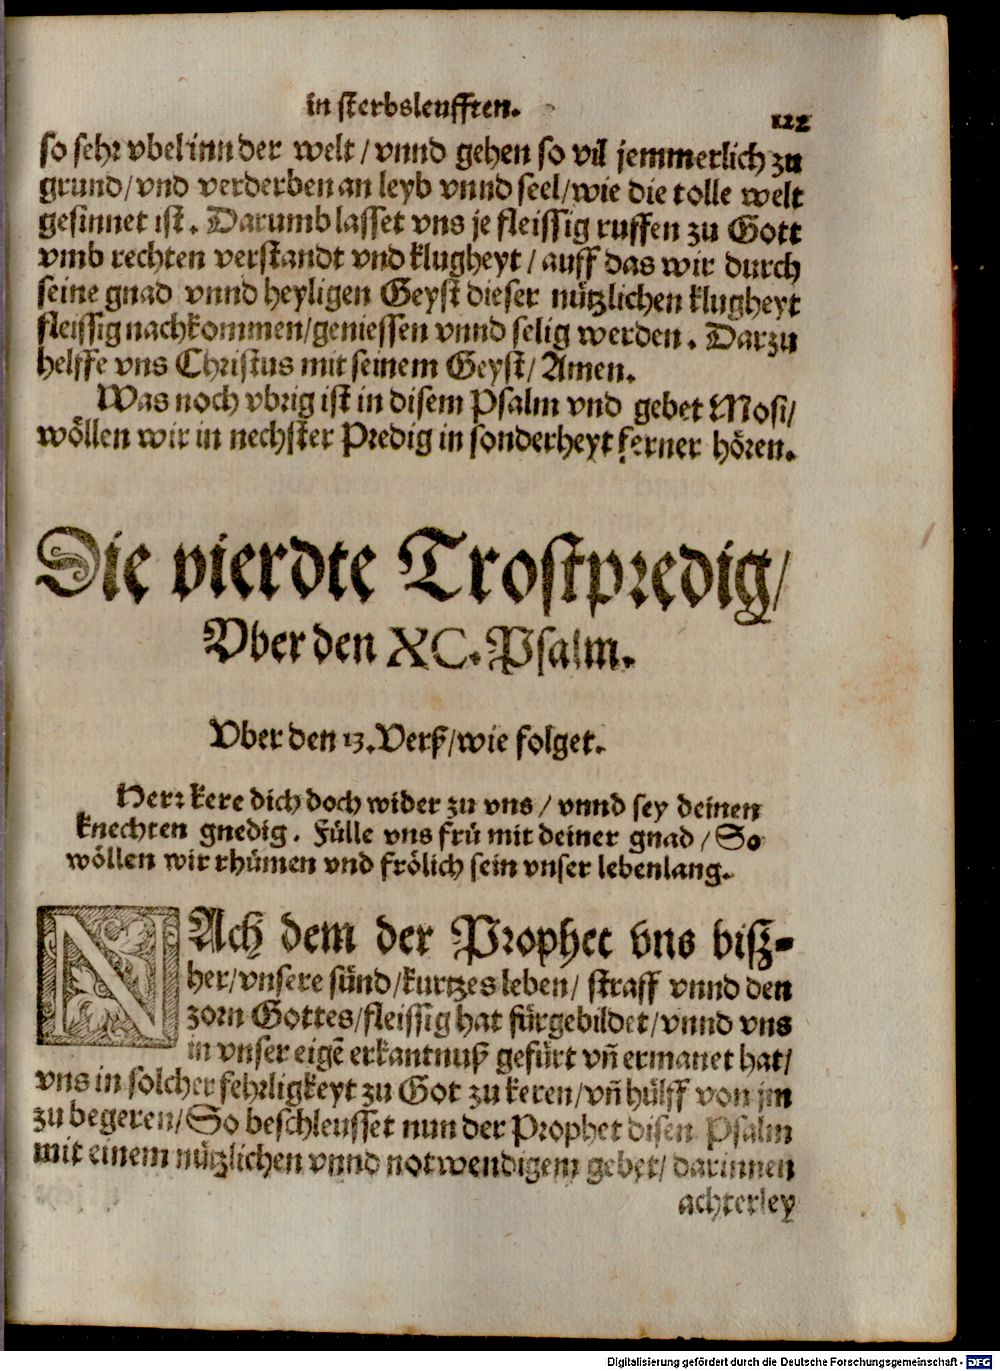 in sterbsleufften. 122
so sehr vbel inn der welt / vnnd gehen so vil jemmerlich zu
grund / vnd verderben an leyb vnnd seel / wie die tolle welt
gesinnet ist. Darumb lasset vns je fleissig ruffen zu Gott
vmb rechten verstandt vnd klugheyt / auff das wir durch
seine gnad vnnd heyligen Geyst dieser nützlichen klugheyt
fleissig nachkommen / geniessen vnnd selig werden. Darzu
helffe vns Christus mit seinem Geyst / Amen.
Was noch vbrig ist in disem Psalm vnd gebet Mosi /
wöllen wir in nechster Predig in sonderheyt ferner hören.
Die vierdte Trostpredig /
Vber den XC. Psalm.
Vber den 13. Verß / wie folget.
Herr kere dich doch wider zu vns / vnnd sey deinen
knechten gnedig. Fülle vns frü mit deiner gnad / So
wöllen wir rhümen vnd frölich sein vnser lebenlang.
NAch dem der Prophet vns bisz-
her / vnsere sünd / kurtzes leben / straff vnnd den
zorn Gottes / fleissig hat fürgebildet / vnnd vns
in vnser eigẽ erkantnuß gefürt vñ ermanet hat /
vns in solcher fehrligkeyt zu Got zu keren / vñ hülff von jm
zu begeren / So beschleusset nun der Prophet disen Psalm
mit einem nützlichen vnnd notwendigem gebet / darinnen
achterley
Digitalisierung gefördert durch die Deutsche Forschungsgemeinschaft - DFG